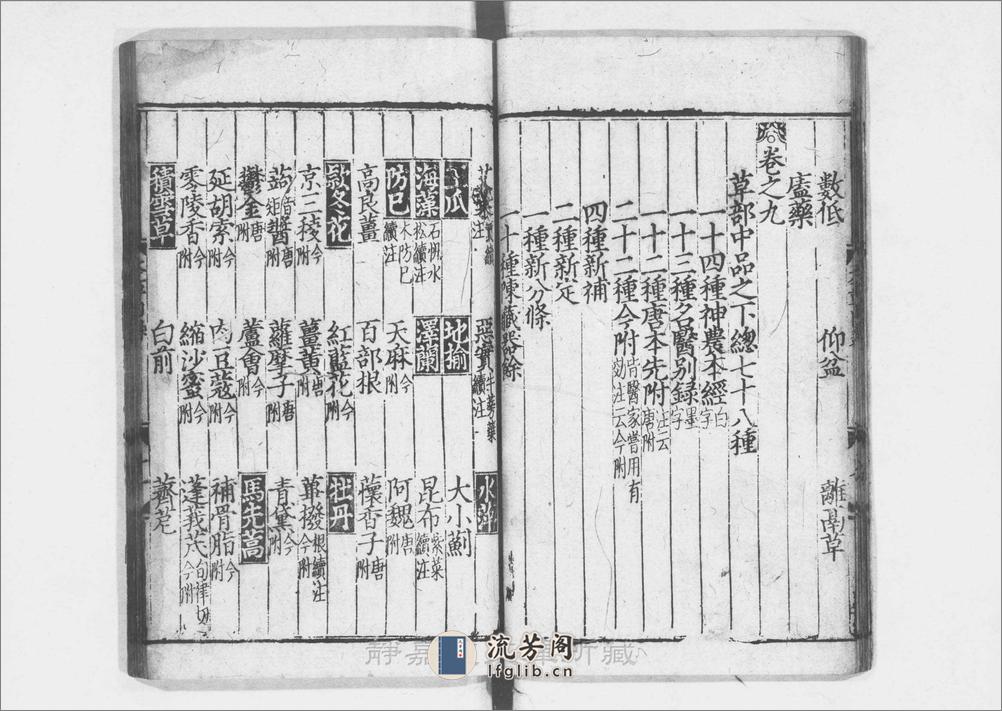 數低 仰盆 離鬲草
廬藥
卷之九
草部中品之下總七十八種
一十四種神農本經白字
一十三種名醫別録墨字
一十二種唐本先附注云唐附
二十二種今附皆醫家嘗用有効注云今附
四種新補
二種新定
一種新分條
一十種陳藏器餘
惡實牛蒡葉續注 水萍
王瓜 地榆 大小薊
海藻石帆水松續注 澤蘭 昆布紫菜續注
防巳木防巳續注 天麻今附 阿魏唐附
高良薑 百部根 蘹香子唐附
款冬花 紅藍花今附 牡丹
京三稜今附 薑黃唐附 蓽撥根續注今附
蒟音矩醬唐附 蘿摩子唐附 青黛今附
鬱金唐附 蘆會今附 馬先蒿
延胡索今附 肉豆蔻今附 補骨脂今附
零陵香今附 縮沙蜜今附 蓬莪茂旬律切今附
積雪草 白前 薺苨
靜嘉 所藏
流芳阁
lfglib.cn